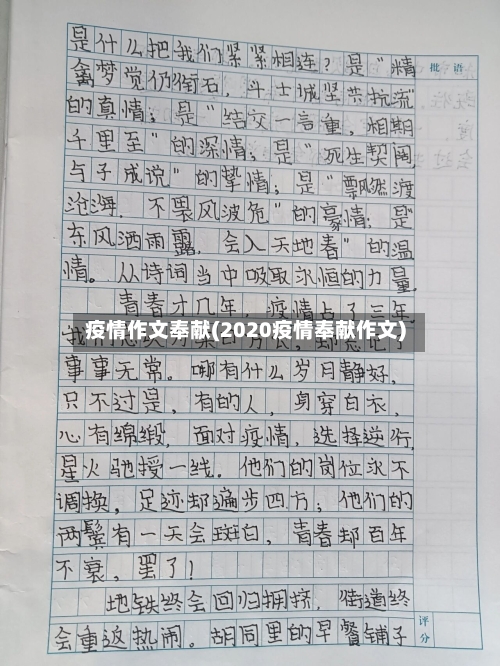 是什么把我们紧紧相连？是"精
批 语
禽梦觉仍衔石，斗士诚坚共抗流"
的真情；是"结交一言重，相期
千里至"的深情；是"死生契阔，
与子成说"的挚情；是"飘然渡
沧海，不畏风波危"的豪情；是"
东风洒雨露，会入天地春"的温
情。从诗词当中吸取永恒的力量。
青春才几年，疫情占了三年。
疫情作文奉献(2020疫情奉献作文)
事事无常。哪有什么岁月静好，
只不过是，有的人，身穿白衣，
心有绵缎，面对疫情，选择逆行，
星火驰援一线。他们的岗位永不
调换，足迹却遍步四方；他们的
两鬓有一天会斑白，青春却百年
不衰，罢了！
地铁终会回归拥挤，街道终
会重返热闹。胡同里的早餐铺子
评分